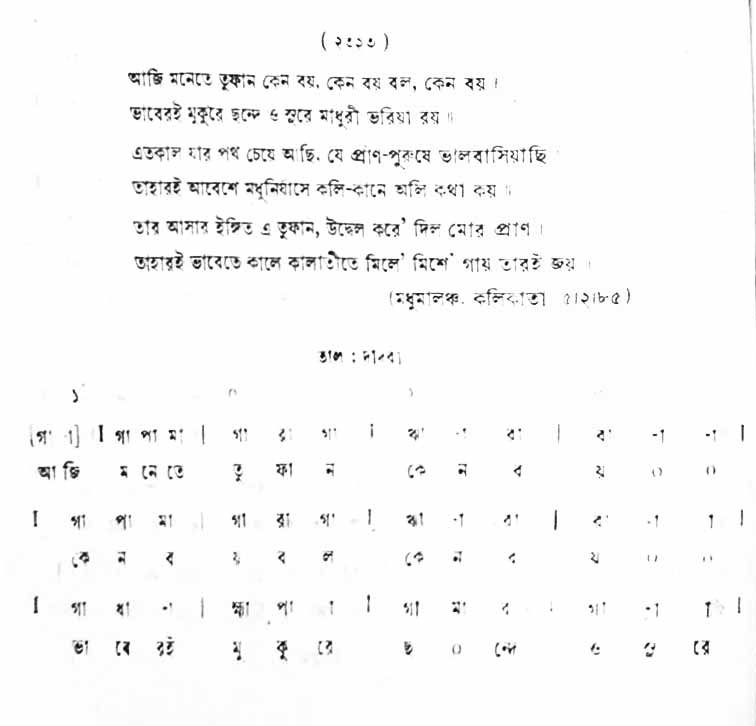 ( ২৩১৩ )
আজি মনেতে তুফান কেন বয়, কেন বয় বল, কেন বয় ।
ভাবেরই মুকুরে ছন্দে ও সুরে মাধুরী ভরিয়া রয় ॥
এতকাল যার পথ চেয়ে আছি, যে প্রাণ-পুরুষে ভালবাসিয়াছি
তাহারই আবেশে মধুনির্যাসে কলি-কানে অলি কথা কয় ॥
তার আসার ইঙ্গিত এ তুফান, উদ্বেল করে' দিল মোর প্রাণ ।
তাহারই ভাবেতে কালে কালাতীতে মিলে' মিশে' গায় তারই জয় ।
(মধুমালঞ্চ, কলিকাতা ৫।২।৮৫)
তাল : দাদরা
১ ০ ১
[গা -া] I গা পা মা | গা রা গা | ঋা -া রা | রা -া -া |
আ জি ম নে তে তু ফা ন কে ন ব য় ০ ০
I গা পা মা | গা রা গা | ঋা -া রা | রা -া া |
কে ন ব য় ব ল কে ন ব য় ০ ০
I গা ধা -া | হ্মা পা া | গা মা র | গা -া া |
ভা বে রই মু কু রে ছ ০ ন্দে ও সু রে